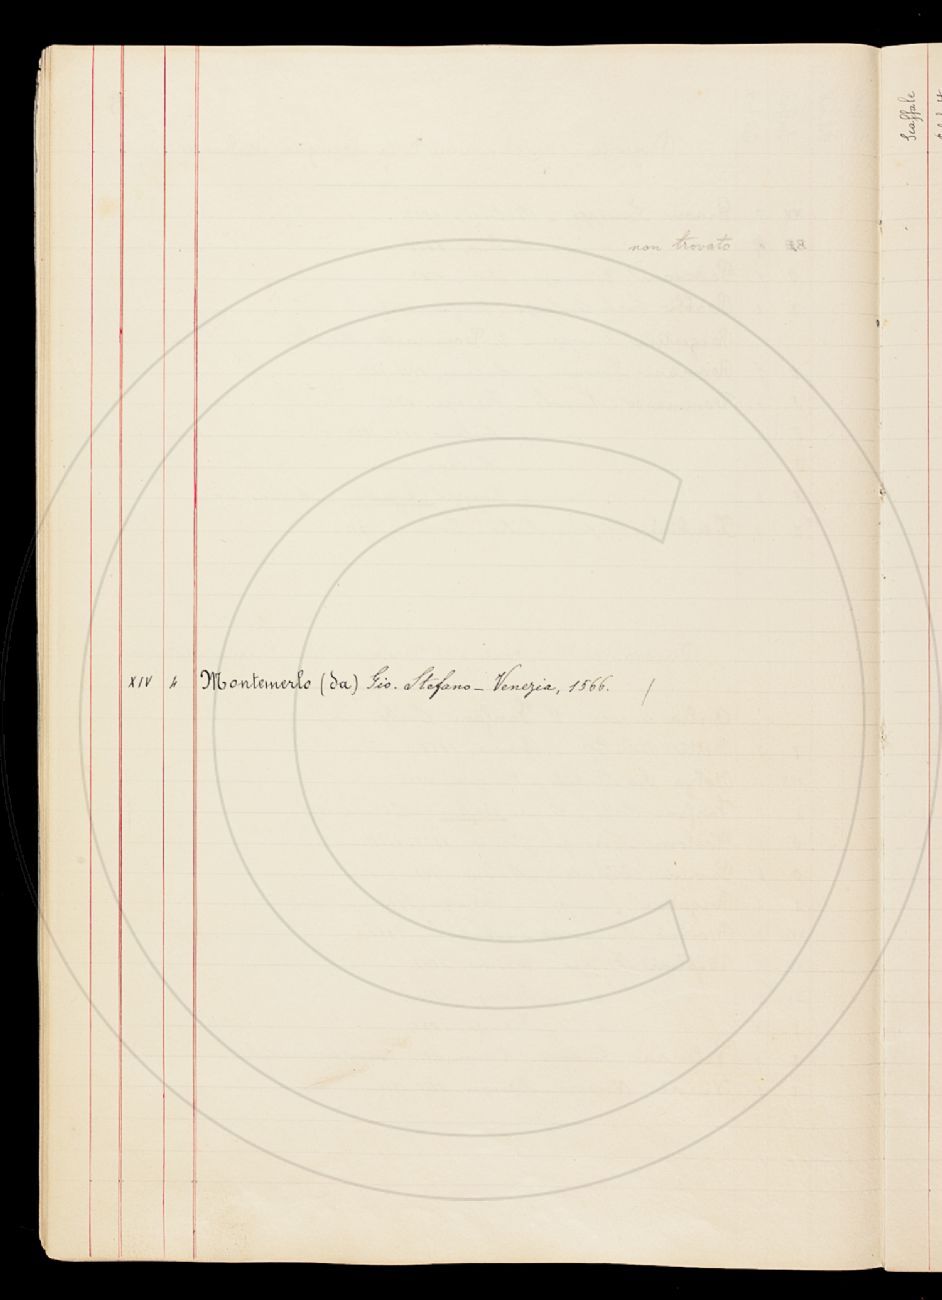 Scaffale
non trovato
XIV 4 Montemerlo (da) Gio. Stefano – Venezia, 1566. /